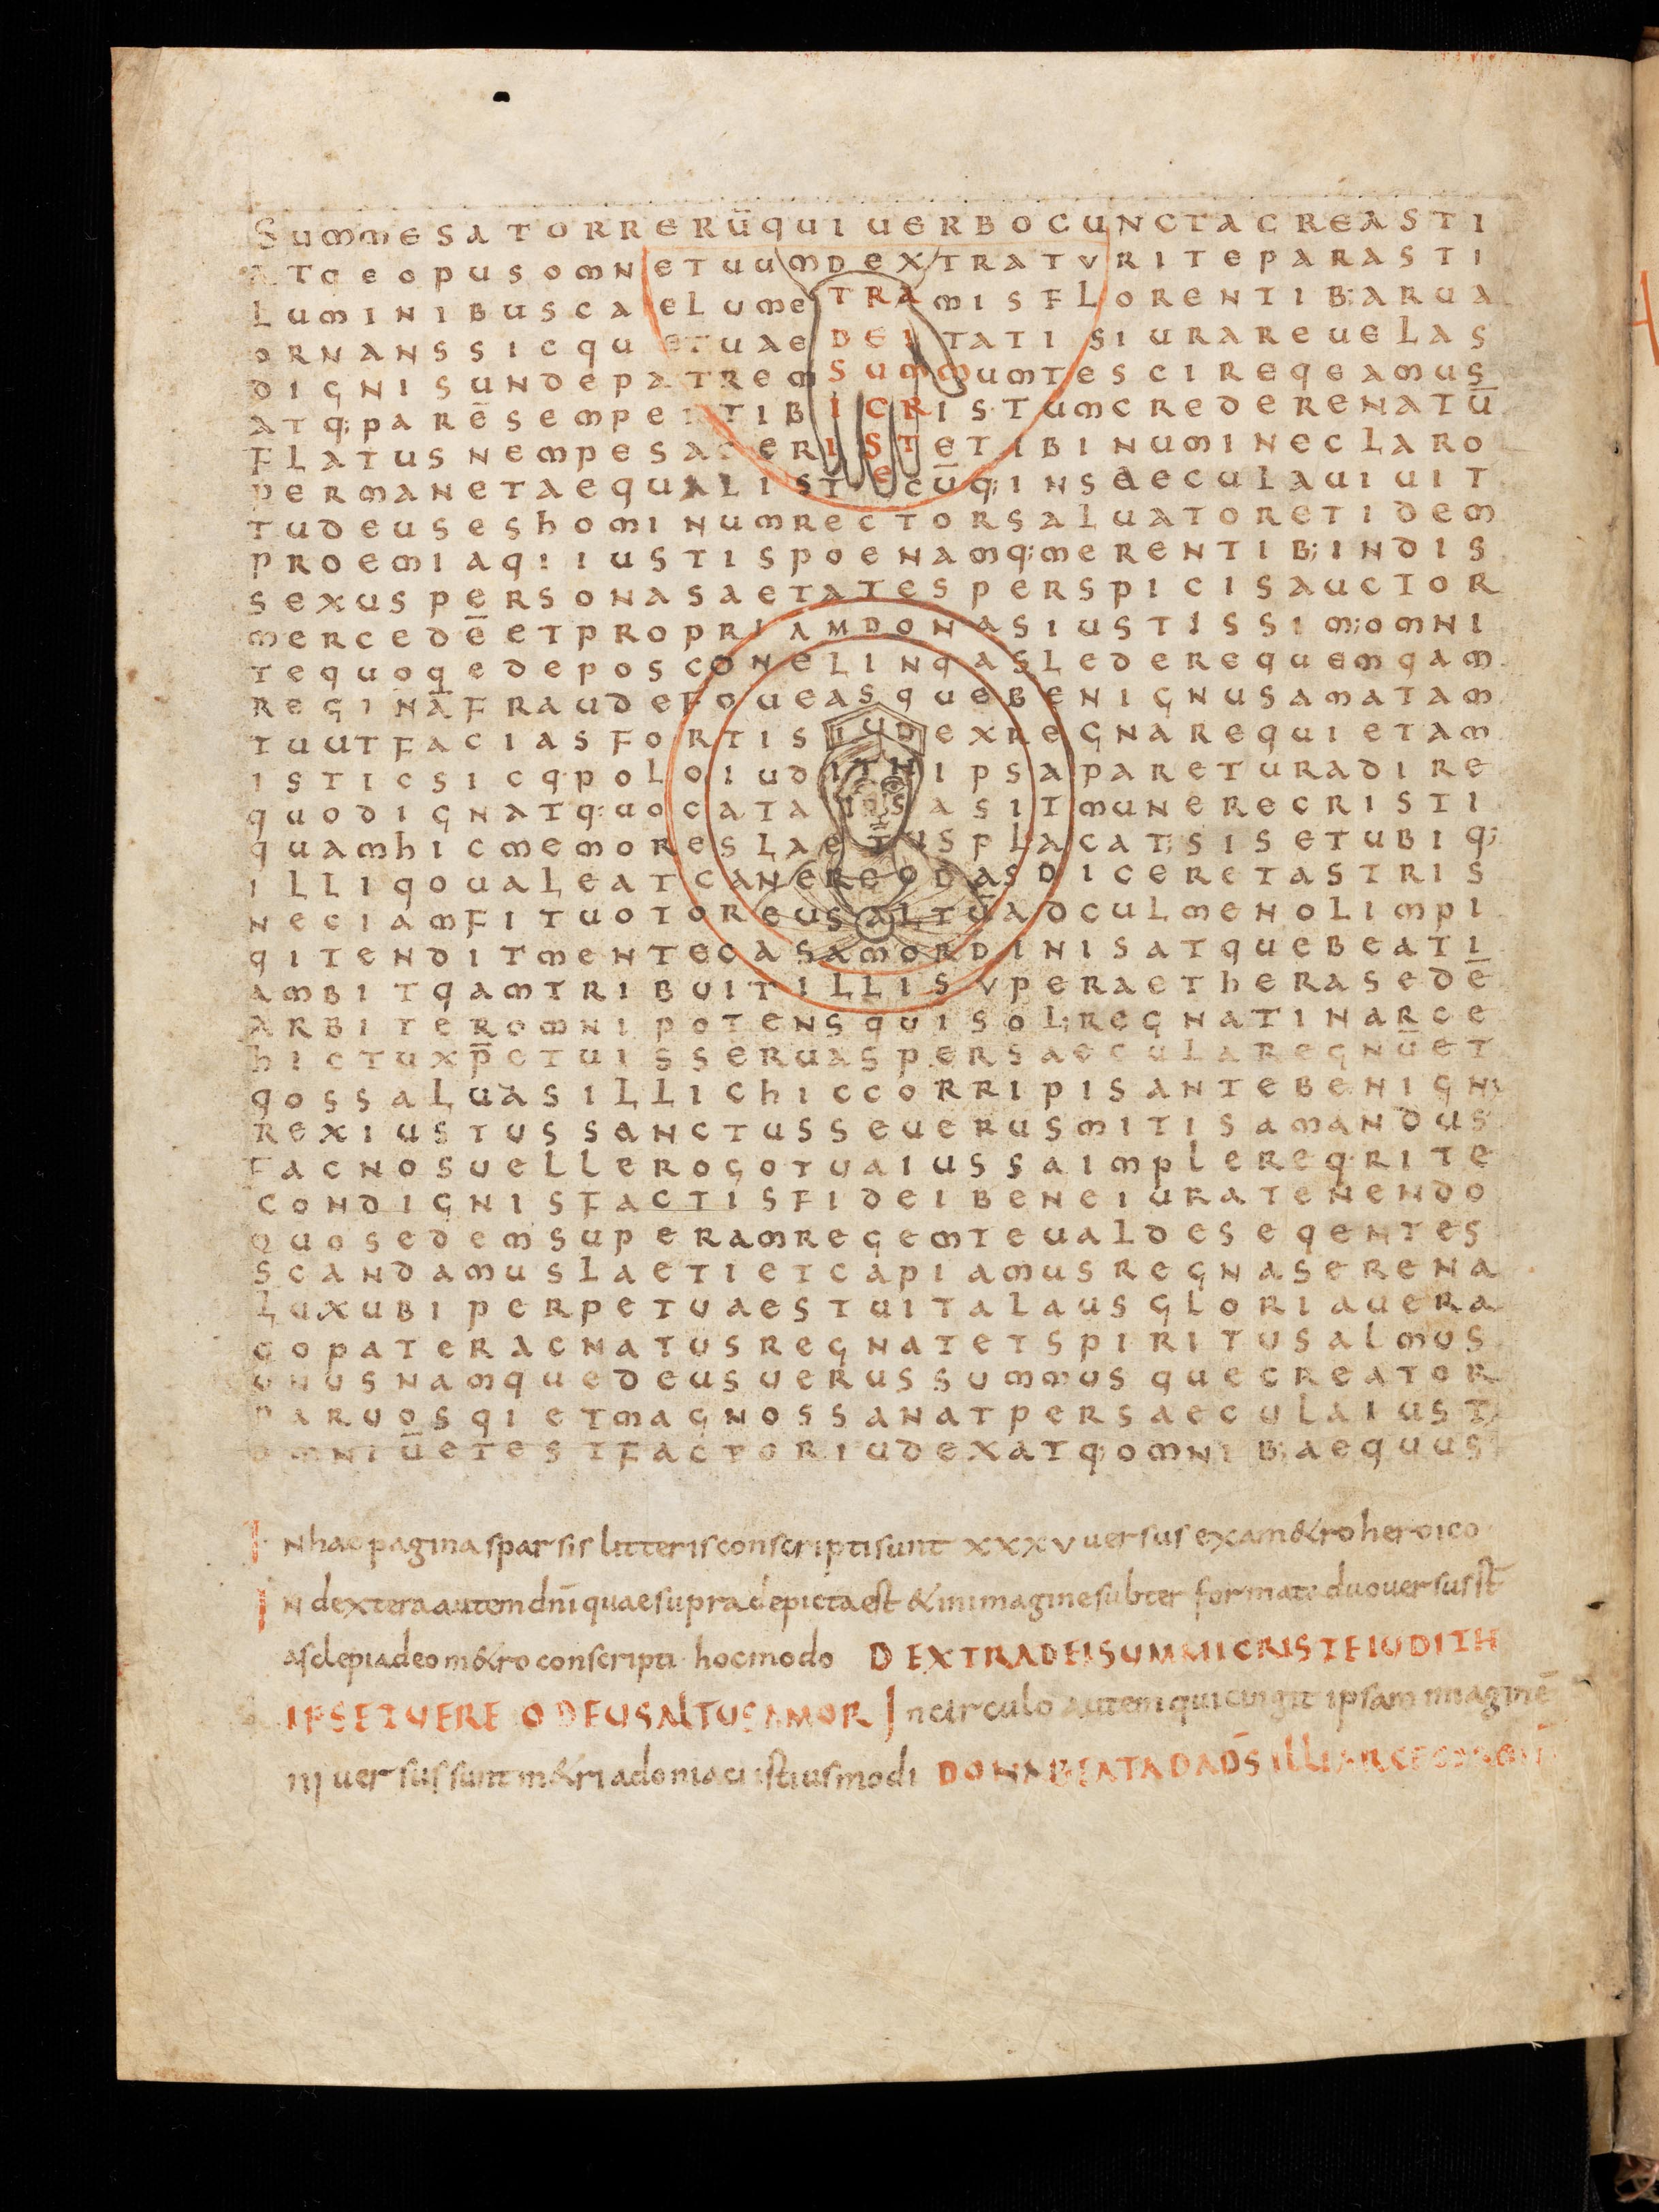 SUMMESATORRERERŪQUIUERBOCUNCTACREASTI
ATQEOPUSOMNETUUMDEXTRATVRITEPARASTI
LUMINIBUSCAELUMETRAMISFLORENTIB;ARUA
ORNANSSICQUETUAEDEITATISIURAREUELAS
DIGNISUNDEPATREMSUMMUMTESCIREQEAMUS
ATQ;PARĒSEMPERTIBICRISTUMCREDERENATŪ
FLATUSNEMPESACERISTETIBINUMINECLARO
PERMANETAEQUALISTECŪQ;INSAECULAUIUIT
TUDEUSESHOMINUMRECTORSALUATORETIDEM
PROEMIAQIIUSTISPOENAMQ;MERENTIB;INDIS
SEXUSPERSONASAETATESPERSPICISAUCTOR
MERCEDĒETPROPRIAMDONASIUSTISSIM;OMNI
TEQUOQEDEPOSCONELINQASLEDEREQUEMQAM
REGINĀFRAUDEFOUEASQUEBENIGNUSAMATAM
TUUTFACIASFORTISIUDEXREGNAREQUIETAM
ISTICSICQPOLOIUDITHIPSAPARETURADIRE
QUODIGNATQ·UOCATAIPSASITMUNERECRISTI
QUAMHICMEMORESLAETUSPLACAT;SISETUBIQ;
ILLIQOUALEATCANEREODASDICERETASTRIS
NECIAMFITUOTOREUSALTŪADCULMENOLIMPI
QITENDITMENTECASAMORDINISATQUEBEATI
AMBITQAMTRIBUITILLISVPERAETHERASEDĒ
ARBITEROMNIPOTENSQUISOL;REGNATINARCE
HICTUXP̄ETUISSERUASPERSAECULAREGNŪET
QOSSALUASILLICHICCORRIPISANTEBENIGN;
REXIUSTUSSANCTUSSEUERUSMITISAMANDUS
FACNOSUELLEROGOTUAIUSSAIMPLEREQ·RITE
CONDIGNISFACTISFIDEIBENEIURATENENDO
QUOSEDEMSUPERAMREGEMTEUALDESEQENTES
SCANDAMUSLAETIETCAPIAMUSREGNASERENA
LUXUBIPERPETUAESTUITALAUSGLORIAUERA
QOPATERACNATUSREGNATETSPIRITUSALMUS
UNUSNAMQUEDEUSUERUSSUMMUSQUECREATOR
PARUOSQIETMAGNOSSANATPERSAECULAIUST;
OMNIŪETESTFACTORIUDEXATQ;OMNIB;AEQUUS
INhacpaginasparsis litterisconscriptisunt xxxv uersus exam&roheroico
IN dexteraautemdn̄iquaesupradepictaest &inimaginesubter formata duouersusst̄
asclepiadeom&roconscripti hocmodo DEXTRADEISUMMICRISTEIUDITH
IPSETUERE ODEUSALTUSAMOR Incirculo autemquicingit ipsam imaginē
iiiuersussuntm&riadoniaci istiusmodi DONABEATADADS̄ILLIARCE